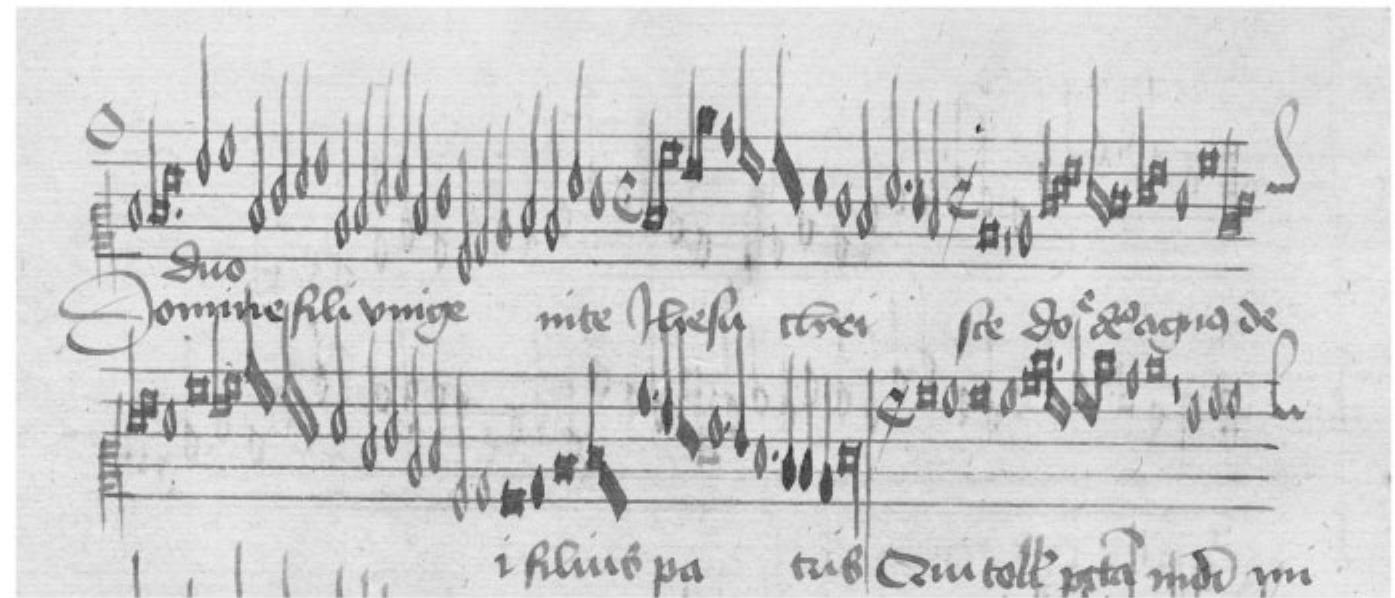 duo
Domine fili vnige nite Jhesu chri ste do de agnus de
i filius pa tris Qui toll pctā mdi mi